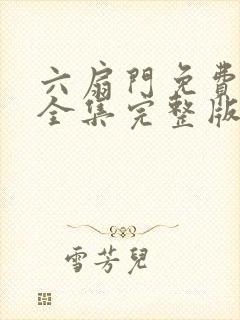 六扇門免費
全集完整版
雪芳兒